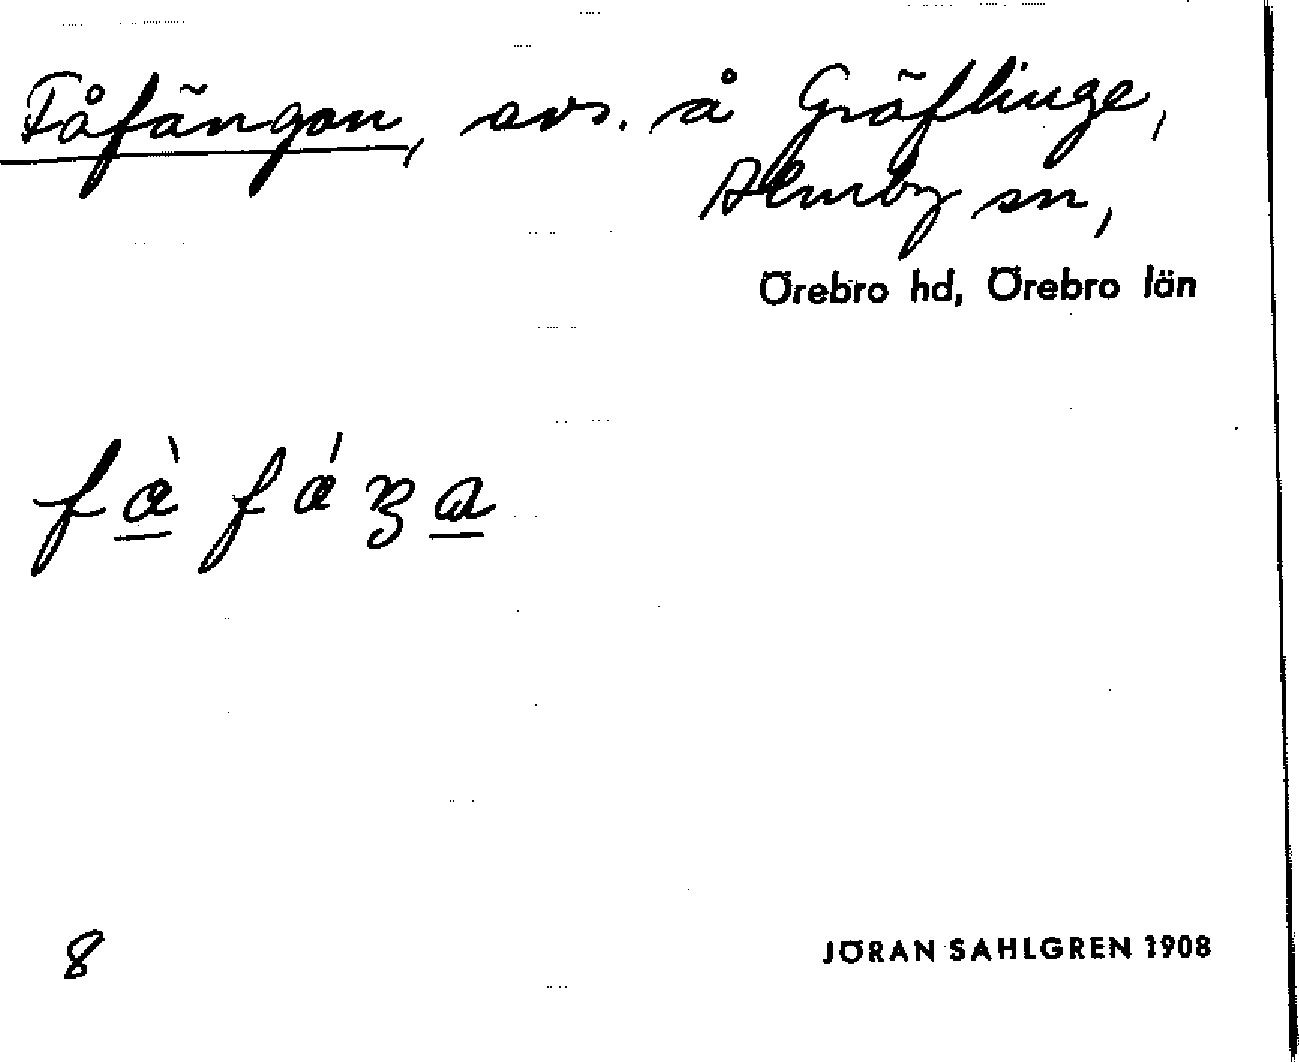 Fåfängan, avs. å Gräflinge,
Almby sn,
Örebro hd, Örebro län
8
JÖRAN SAHLGREN 1908